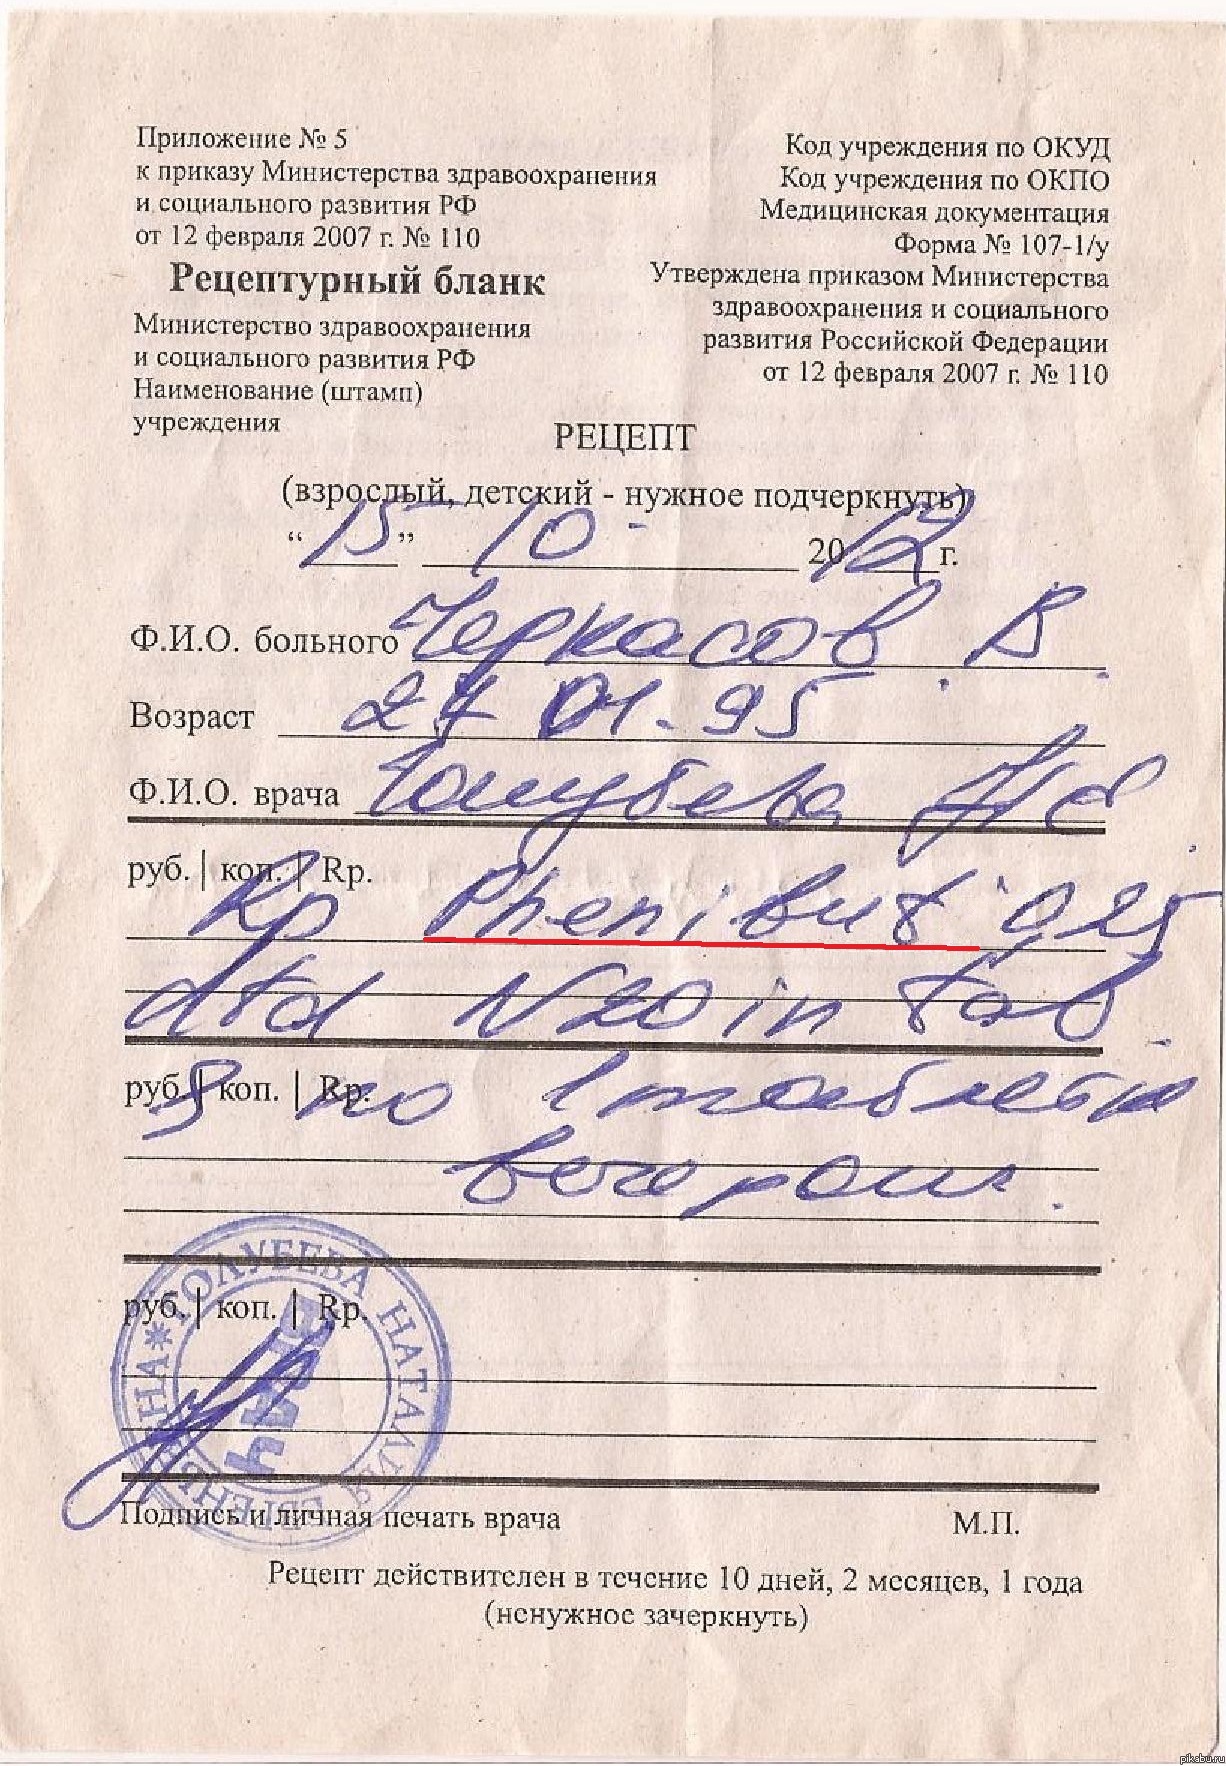 Приложение № 5
к приказу Министерства здравоохранения
и социального развития РФ
от 12 февраля 2007 г. № 110
Рецептурный бланк
Министерство здравоохранения
и социального развития РФ
Наименование (штамп)
учреждения
Код учреждения по ОКУД
Код учреждения по ОКПО
Медицинская документация
Форма № 107-1/у
Утверждена приказом Министерства
здравоохранения и социального
развития Российской Федерации
от 12 февраля 2007 г. № 110
РЕЦЕПТ
(взрослый, детский - нужное подчеркнуть)
“15” 10 2012 г.
Ф.И.О. больного Черкасов В
Возраст 27 01.95
Ф.И.О. врача Голубева НЕ
руб. | коп. | Rp.
Rp Phenibut 0.25
dtd N20 in tab.
руб. | коп. | Rp.
S по 1 таблетке
вечером.
руб. | коп. | Rp.
ГОЛУБЕВА НАТАЛИЯ ЕВГЕНЬЕВНА
ВРАЧ
Подпись и личная печать врача
М.П.
Рецепт действителен в течение 10 дней, 2 месяцев, 1 года
(ненужное зачеркнуть)
pikabu.ru